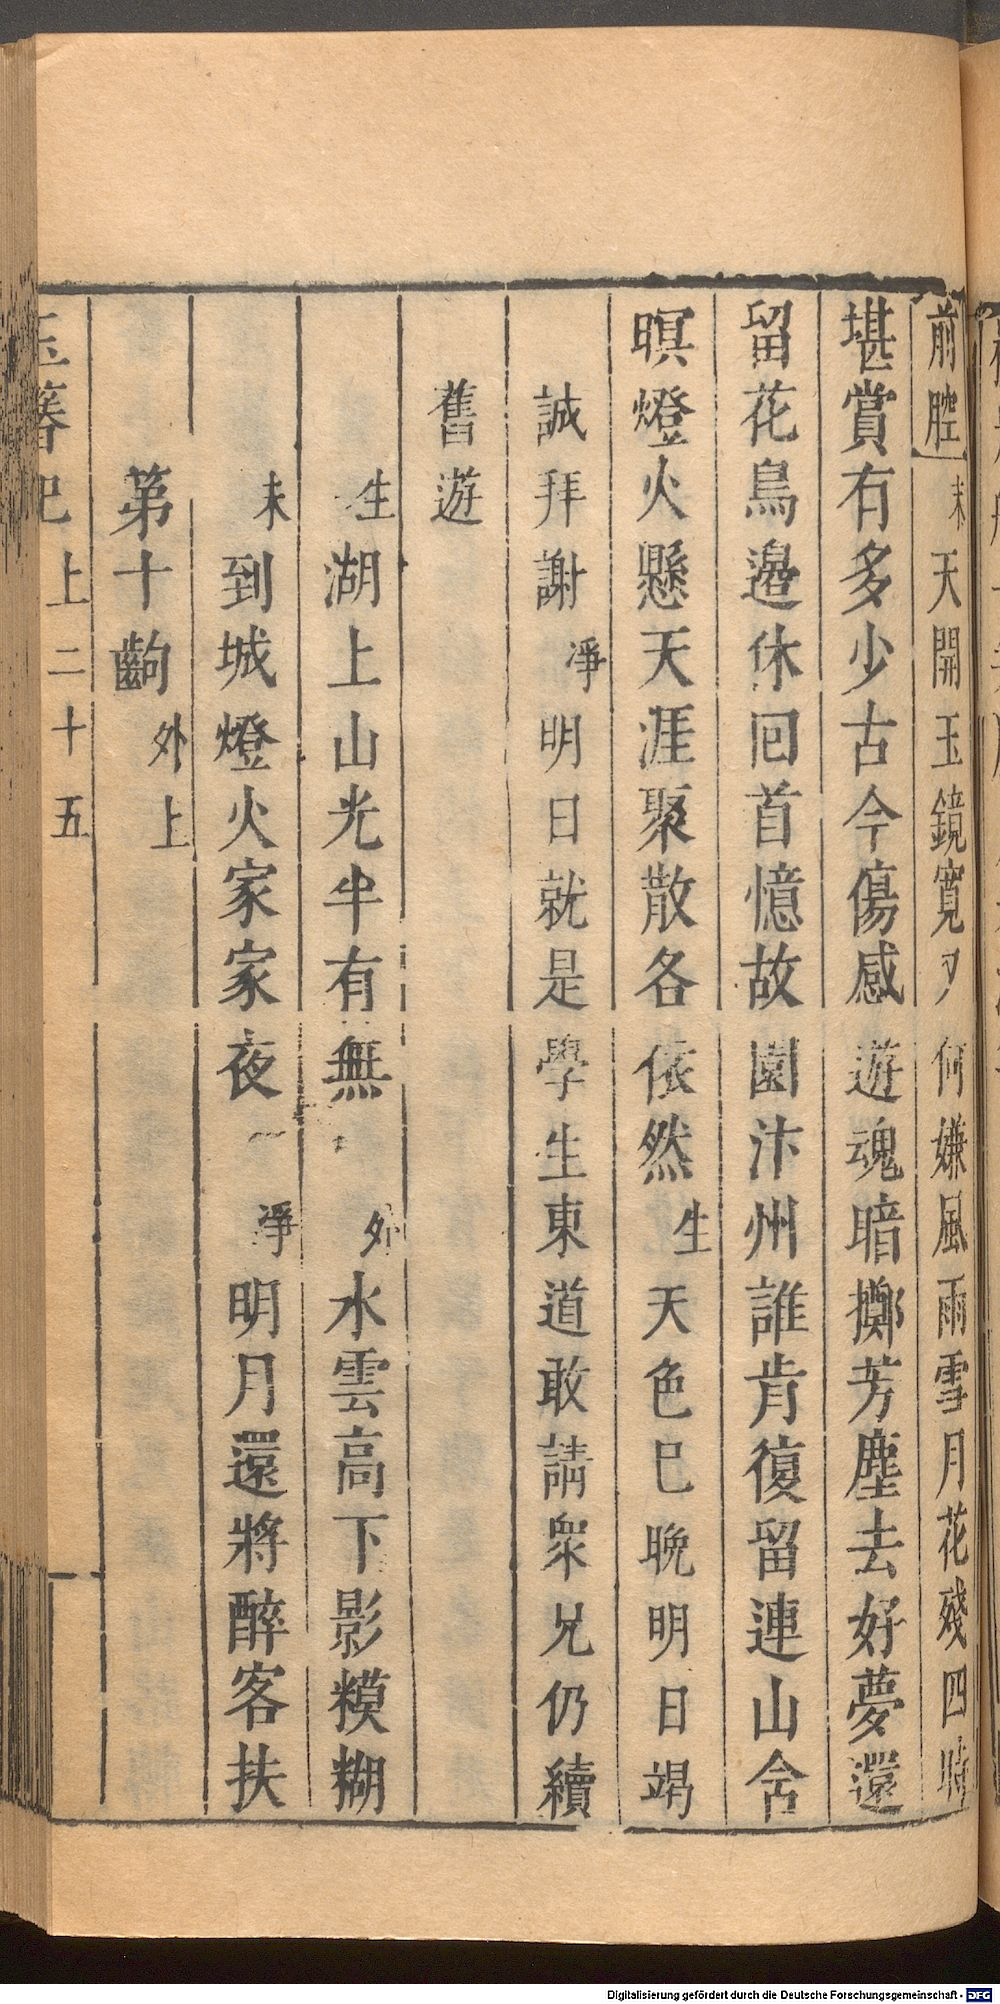 前腔末天開玉鏡寬夕何嫌風雨雪月花殘四時
堪賞有多少古今傷感遊魂暗擲芳塵去好夢還
留花鳥邉休囘首憶故園汴州誰肯復留連山含
暝燈火懸天涯聚散各依然生天色巳晩明日竭
誠拜謝淨明日就是學生東道敢請衆兄仍續
舊遊
生湖上山光半有無外水雲高下影糢糊
末到城燈火家家夜淨明月還將醉客扶
第十齣外上
玉簪記上二十五
Digitalisierung gefördert durch die Deutsche Forschungsgemeinschaft - DFG